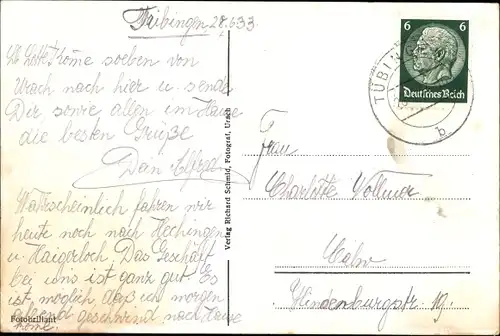 Tübingen 28.6.33.
Lb Lotte! Komme soeben von
Urach nach hier u. sende
Dir sowie allen im Hause
die besten Grüße
Dein Alfred
Wahrscheinlich fahren wir
heute noch nach Hechingen
u. Haigerloch. Das Geschäft
bei uns ist ganz gut. Es
ist möglich daß ich morgen
abend geschwind nach Hause
komme.
Fotobrillant
Verlag Richard Schmid, Fotograf, Urach
6 6
Deutsches Reich
TÜBINGEN
b
Frau
Charlotte Vollmer
Calw
Hindenburgstr. 19.